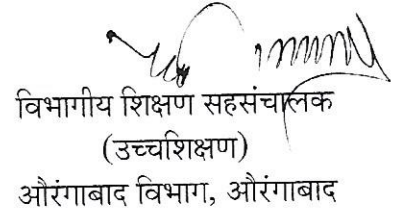 विभागीय शिक्षण सहसंचालक
(उच्चशिक्षण)
औरंगाबाद विभाग, औरंगाबाद